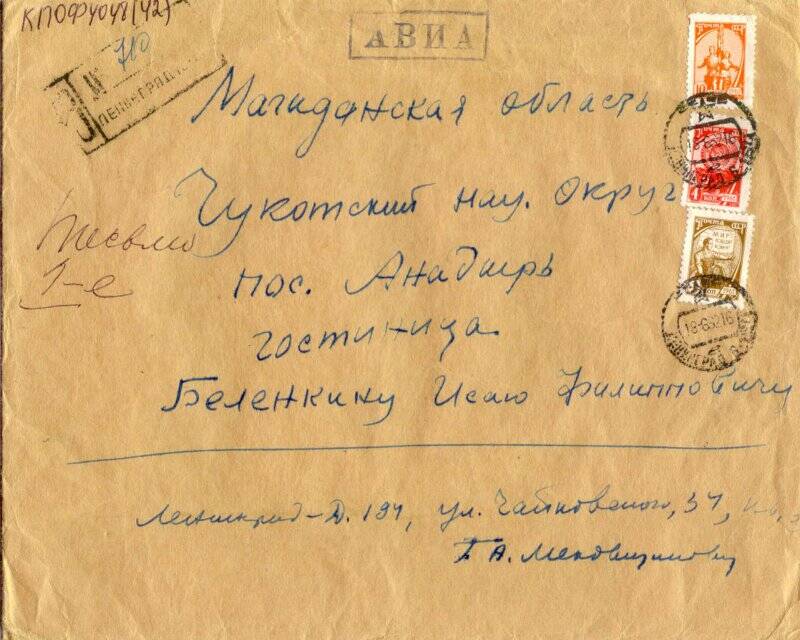 КПОФ4048(42)
АВИА
З
№ 710
ЛЕНИНГРАД
Магаданская область
Чукотский нац. округ
пос. Анадырь
гостиница
Беленкину Исаю Филипповичу
Письмо
1-е
Ленинград-Д. 194, ул. Чайковского, 57,
Г. А. Меновщикову